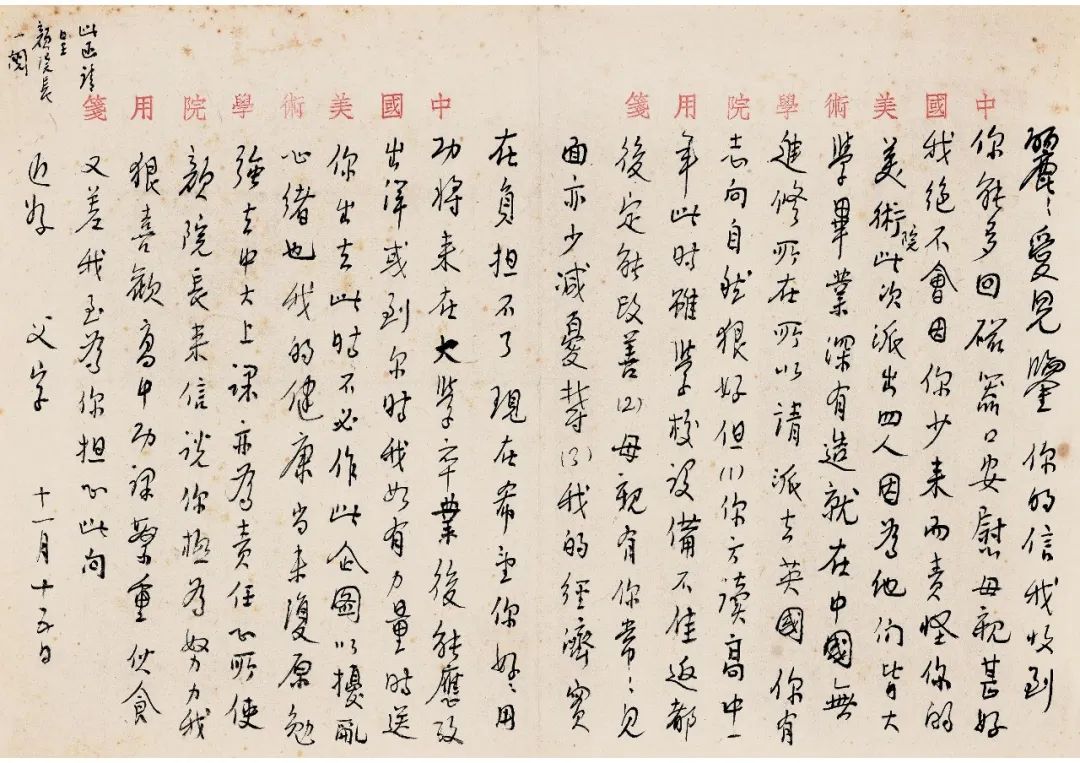 中國美術學院用箋
中國美術學院用箋
麗麗愛兒鑒 你的信我收到
你能多回磁器口安慰母親甚好
我絕不會因你少来而責怪你的
美術院此次派出四人因為他們皆大
學畢業深有造就在中國無
進修所在所以請派去英國你有
志向自然狠好但(1)你方讀高中一
年此时雖學校设備不佳返都
後定能改善(2)母親有你常常見
面亦少减憂鬱(3)我的經濟實
在負担不了現在希望你好好用
功將来在大學卒業後能應攷
出洋或到尔時我如有力量時送
你出去此時不必作此企圖以擾亂
心緒也我的健康尚未復原勉
強去中大上課亦為責任心所使
顏院長来信說你極為努力我
狠喜歡高中功課繁重伙食
又差我至為你担心此问
近好 父字 十一月十五日
此函請
呈
顏院長
一閱